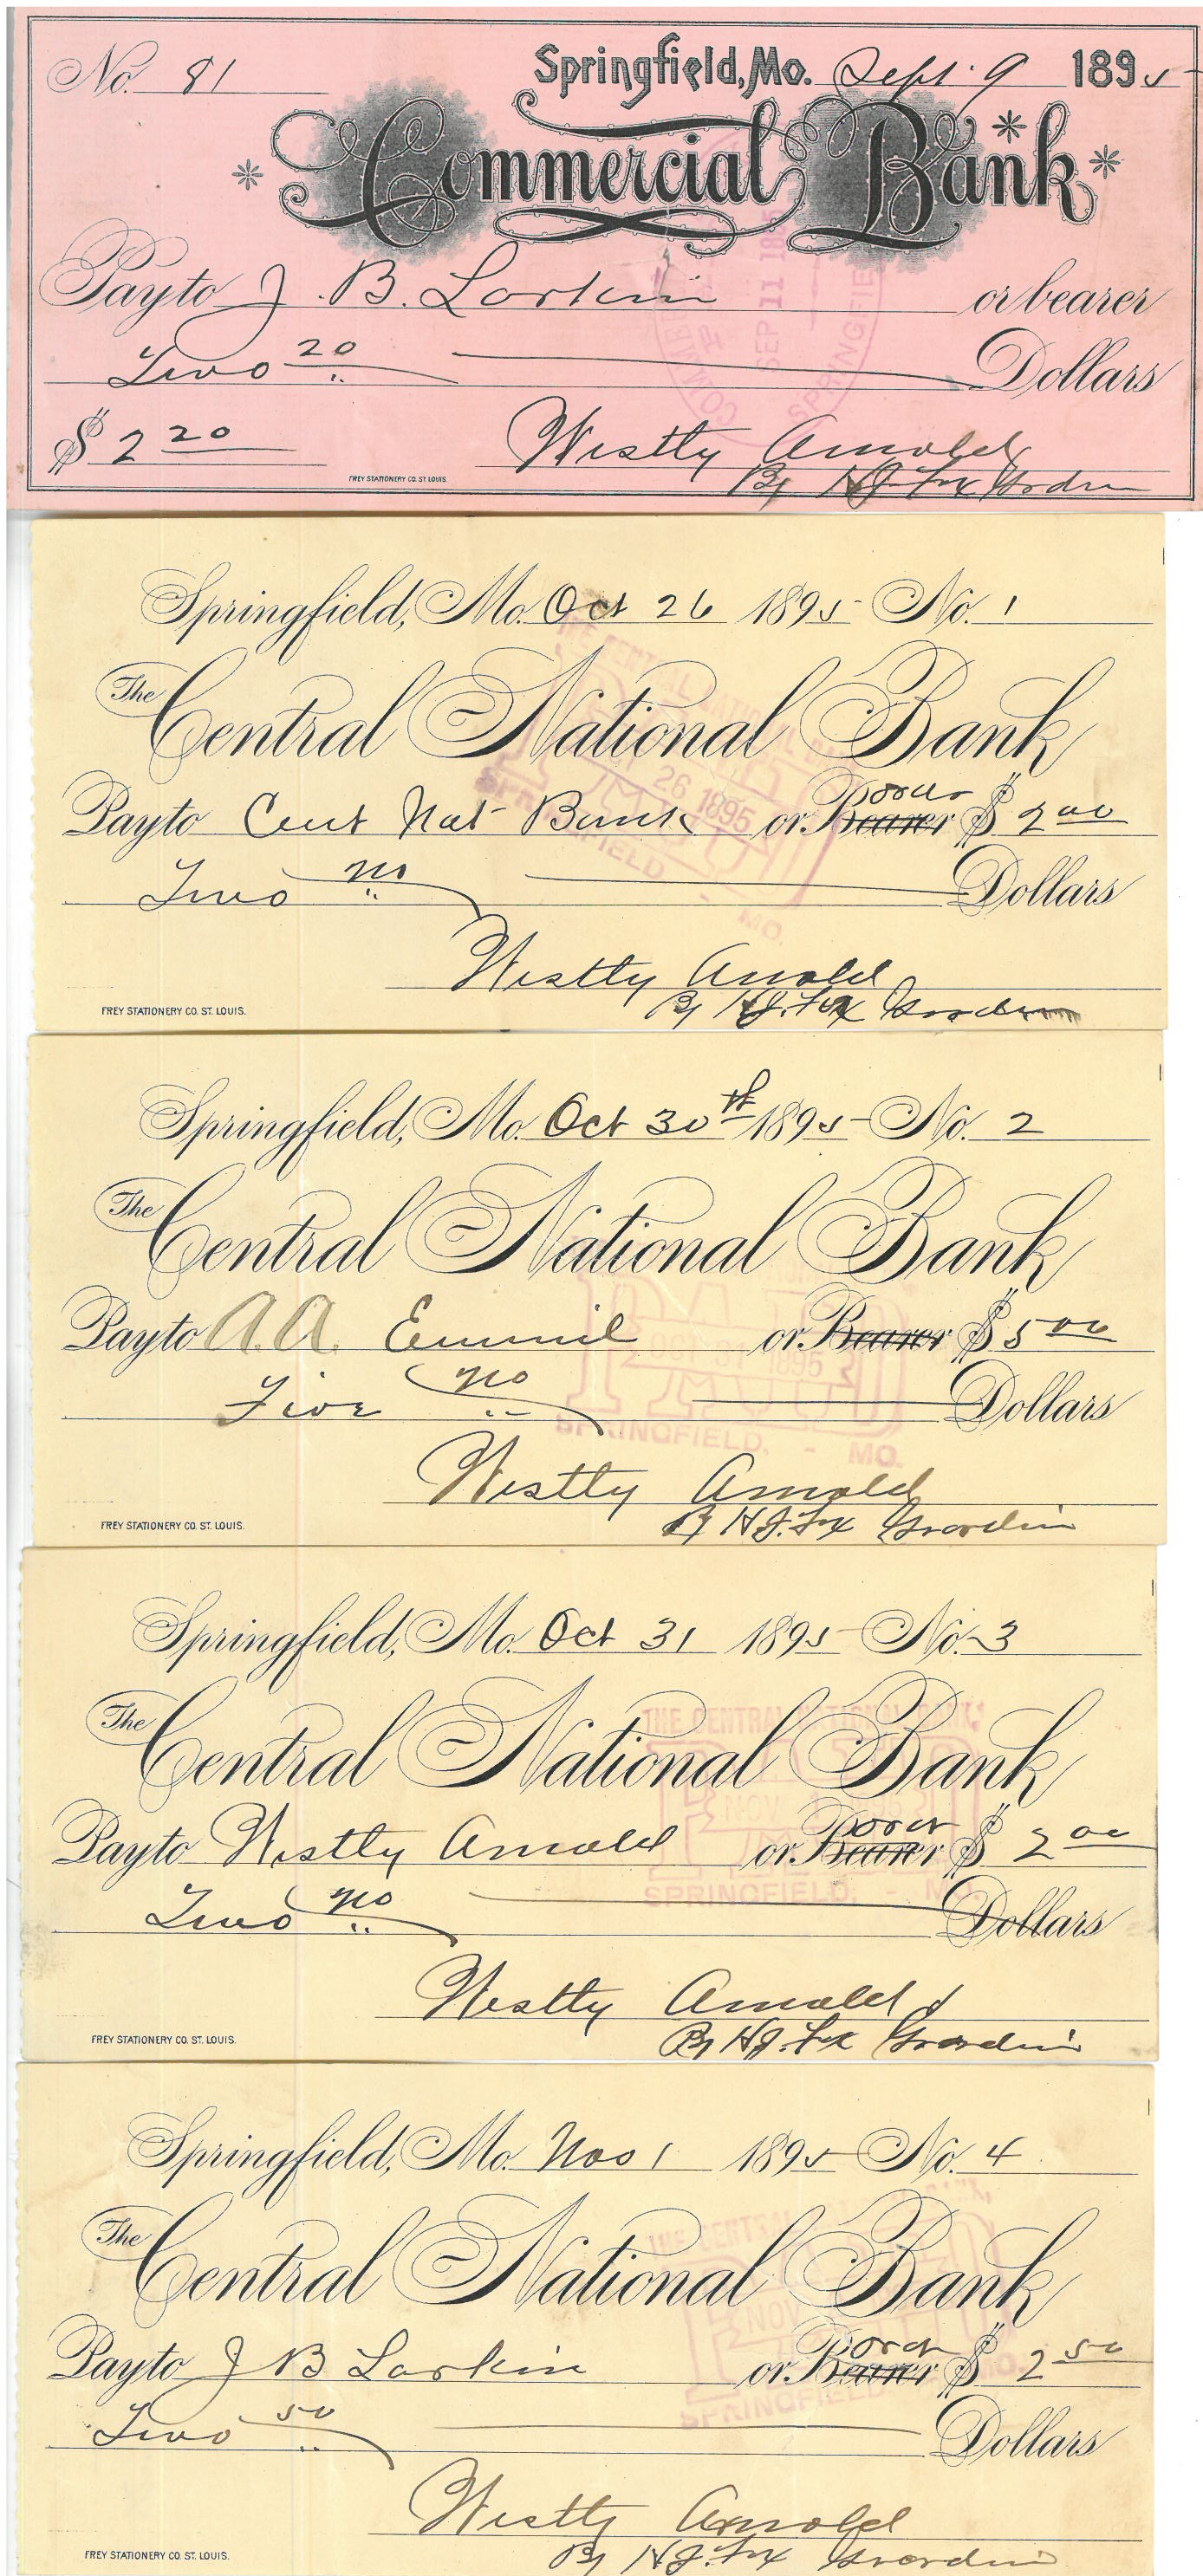 No. 81 Springfield, Mo. Sept. 9 1895
Commercial Bank
Pay to J. B. Larkin or bearer
Two 20 Dollars
$ 2 20 Westly Arnold
By H J Fox
FREY STATIONERY CO. ST. LOUIS
SEP 11
SPRINGFIE
Springfield, Mo. Oct 26 1895 No. 1
The Central National Bank
Pay to Cent Nat Bank or Bearer $ 2 00
Two no Dollars
Westly Arnold
By H J. Fox
FREY STATIONERY CO. ST. LOUIS.
26 1895
MO.
Springfield, Mo. Oct 30th 1895 No. 2
The Central National Bank
Pay to A. A. or Bearer $ 5 00
Five no Dollars
Westly Arnold
By H J. Fox
FREY STATIONERY CO. ST. LOUIS.
1895
SPRINGFIELD. - MO.
Springfield, Mo. Oct 31 1895 No. 3
The Central National Bank
Pay to Westly Arnold or Bearer $ 2 00
Two no Dollars
Westly Arnold
By H J. Fox
FREY STATIONERY CO. ST. LOUIS.
THE CENTRAL NATIONAL BANK,
NOV
SPRINGFIELD, - MO.
Springfield, Mo. Nov 1 1895 No. 4
The Central National Bank
Pay to J B Larkin or Bearer $ 2 50
Two 50 Dollars
Westly Arnold
By H J. Fox
FREY STATIONERY CO. ST. LOUIS.
NOV
SPRINGFIELD